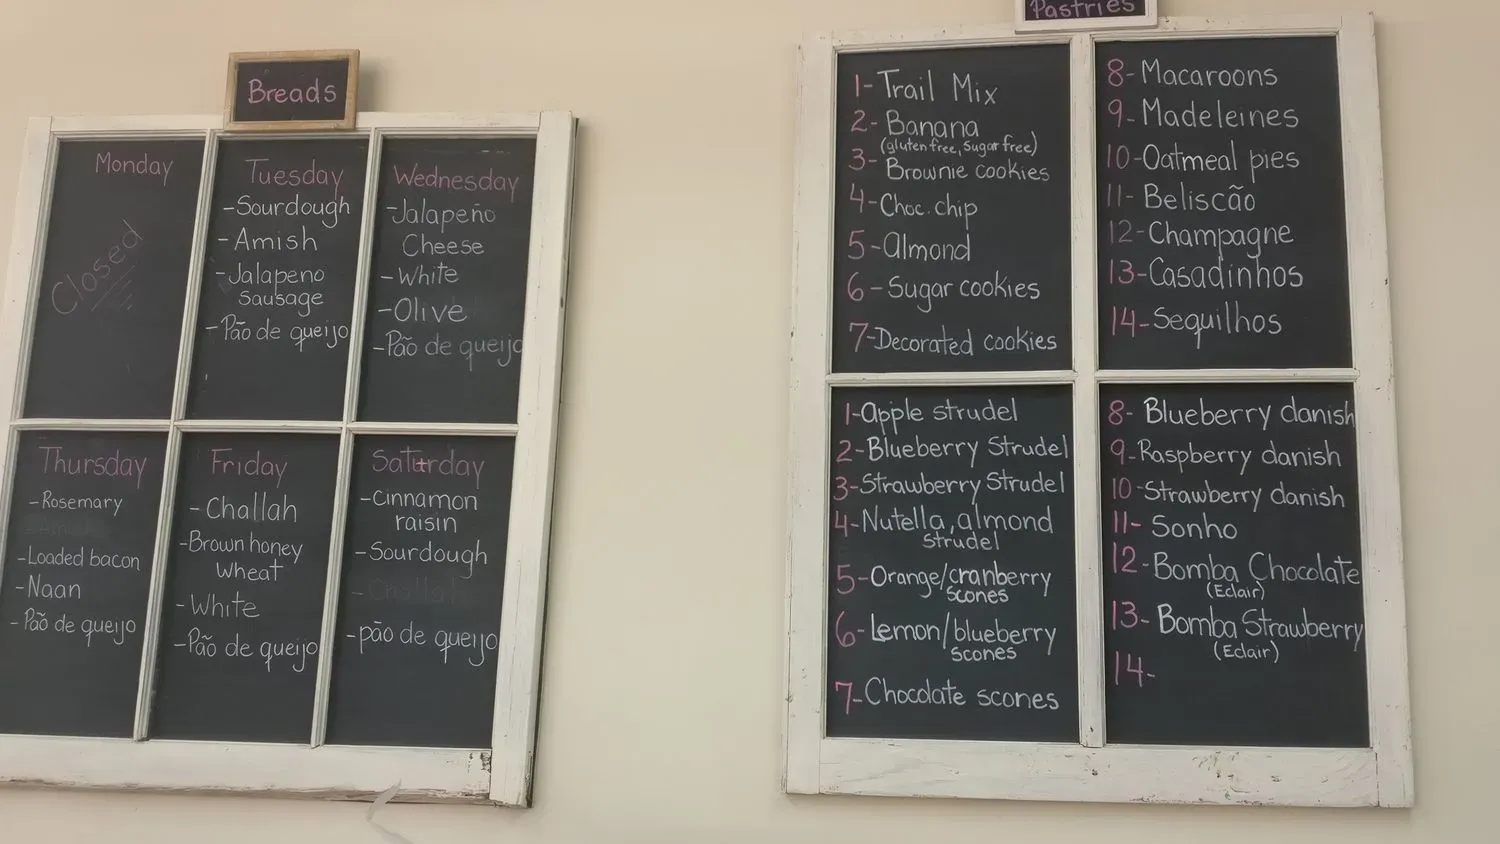 Breads
Monday
Closed
Tuesday
-Sourdough
-Amish
-Jalapeno
sausage
-Pão de queijo
Wednesday
-Jalapeño
Cheese
-White
-Olive
-Pão de queijo
Thursday
-Rosemary
-Loaded bacon
-Naan
-Pão de queijo
Friday
-Challah
-Brown honey
wheat
-White
-Pão de queijo
Saturday
-Cinnamon
raisin
-Sourdough
-Challah
-pão de queijo
Pastries
1-Trail Mix
2-Banana
(gluten free, Sugar free)
3-Brownie cookies
4-Choc. chip
5-almond
6-Sugar cookies
7-Decorated cookies
8-Macaroons
9-Madeleines
10-Oatmeal pies
11-Beliscão
12-Champagne
13-Casadinhos
14-Sequilhos
1-apple strudel
2-Blueberry Strudel
3-Strawberry Strudel
4-Nutella, almond
strudel
5-Orange/cranberry
scones
6-Lemon/blueberry
scones
7-Chocolate scones
8-Blueberry danish
9-Raspberry danish
10-Strawberry danish
11-Sonho
12-Bomba Chocolate
(Eclair)
13-Bomba Strawberry
(Eclair)
14-